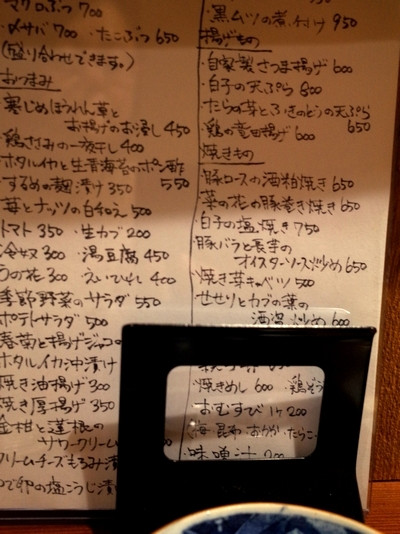 マグロぶつ 700
〆サバ 700 ・たこぶつ 650
(盛り合わせできます。)
おつまみ
寒じめほうれん草と
お揚げのお浸し 450
鶏ささみの一夜干し 400
ホタルイカと生青海苔のポン酢 550
するめの麹漬け 350
苺とナッツの白和え 500
トマト 350 ・生カブ 200
冷奴 300 ・湯豆腐 450
うの花 300 ・えいひれ 400
季節野菜のサラダ 550
ポテトサラダ 500
春菊と揚げジャコの
ホタルイカ沖漬け
焼き油揚げ 300
焼き厚揚げ 350
金柑と蓮根の
サワークリーム
クリームチーズもろみ漬
ゆで卵の塩こうじ漬
・黒ムツの煮付け 950
揚げもの
・自家製さつま揚げ 600
・白子の天ぷら 800
・たらの芽とふきのとうの天ぷら 650
・鶏の竜田揚げ 600
焼きもの
・豚ロースの酒粕焼き 650
・菜の花の豚巻き焼き 650
・白子の塩焼き 750
・豚バラと長芋の
オイスターソース炒め 650
・焼き芽キャベツ 500
・せせりとカブの葉の
酒盗炒め 600
・焼きめし 600 ・鶏ぞう
・おむすび 1ケ 200
梅 昆布 おかか たらこ
・味噌汁 200